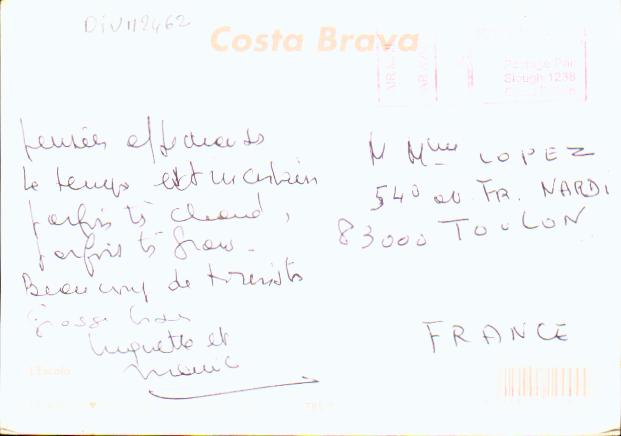 DIV112462
Costa Brava
Postage Paid
Slough 1238
pensées affectueuses
le temps est incertain
parfois ts chaud,
parfois ts frais.
Beaucoup de touristes
Grosses bises
Huguette et
M Mme LOPEZ
540 av FR. NARDI
83000 TOULON
FRANCE
L'Escala